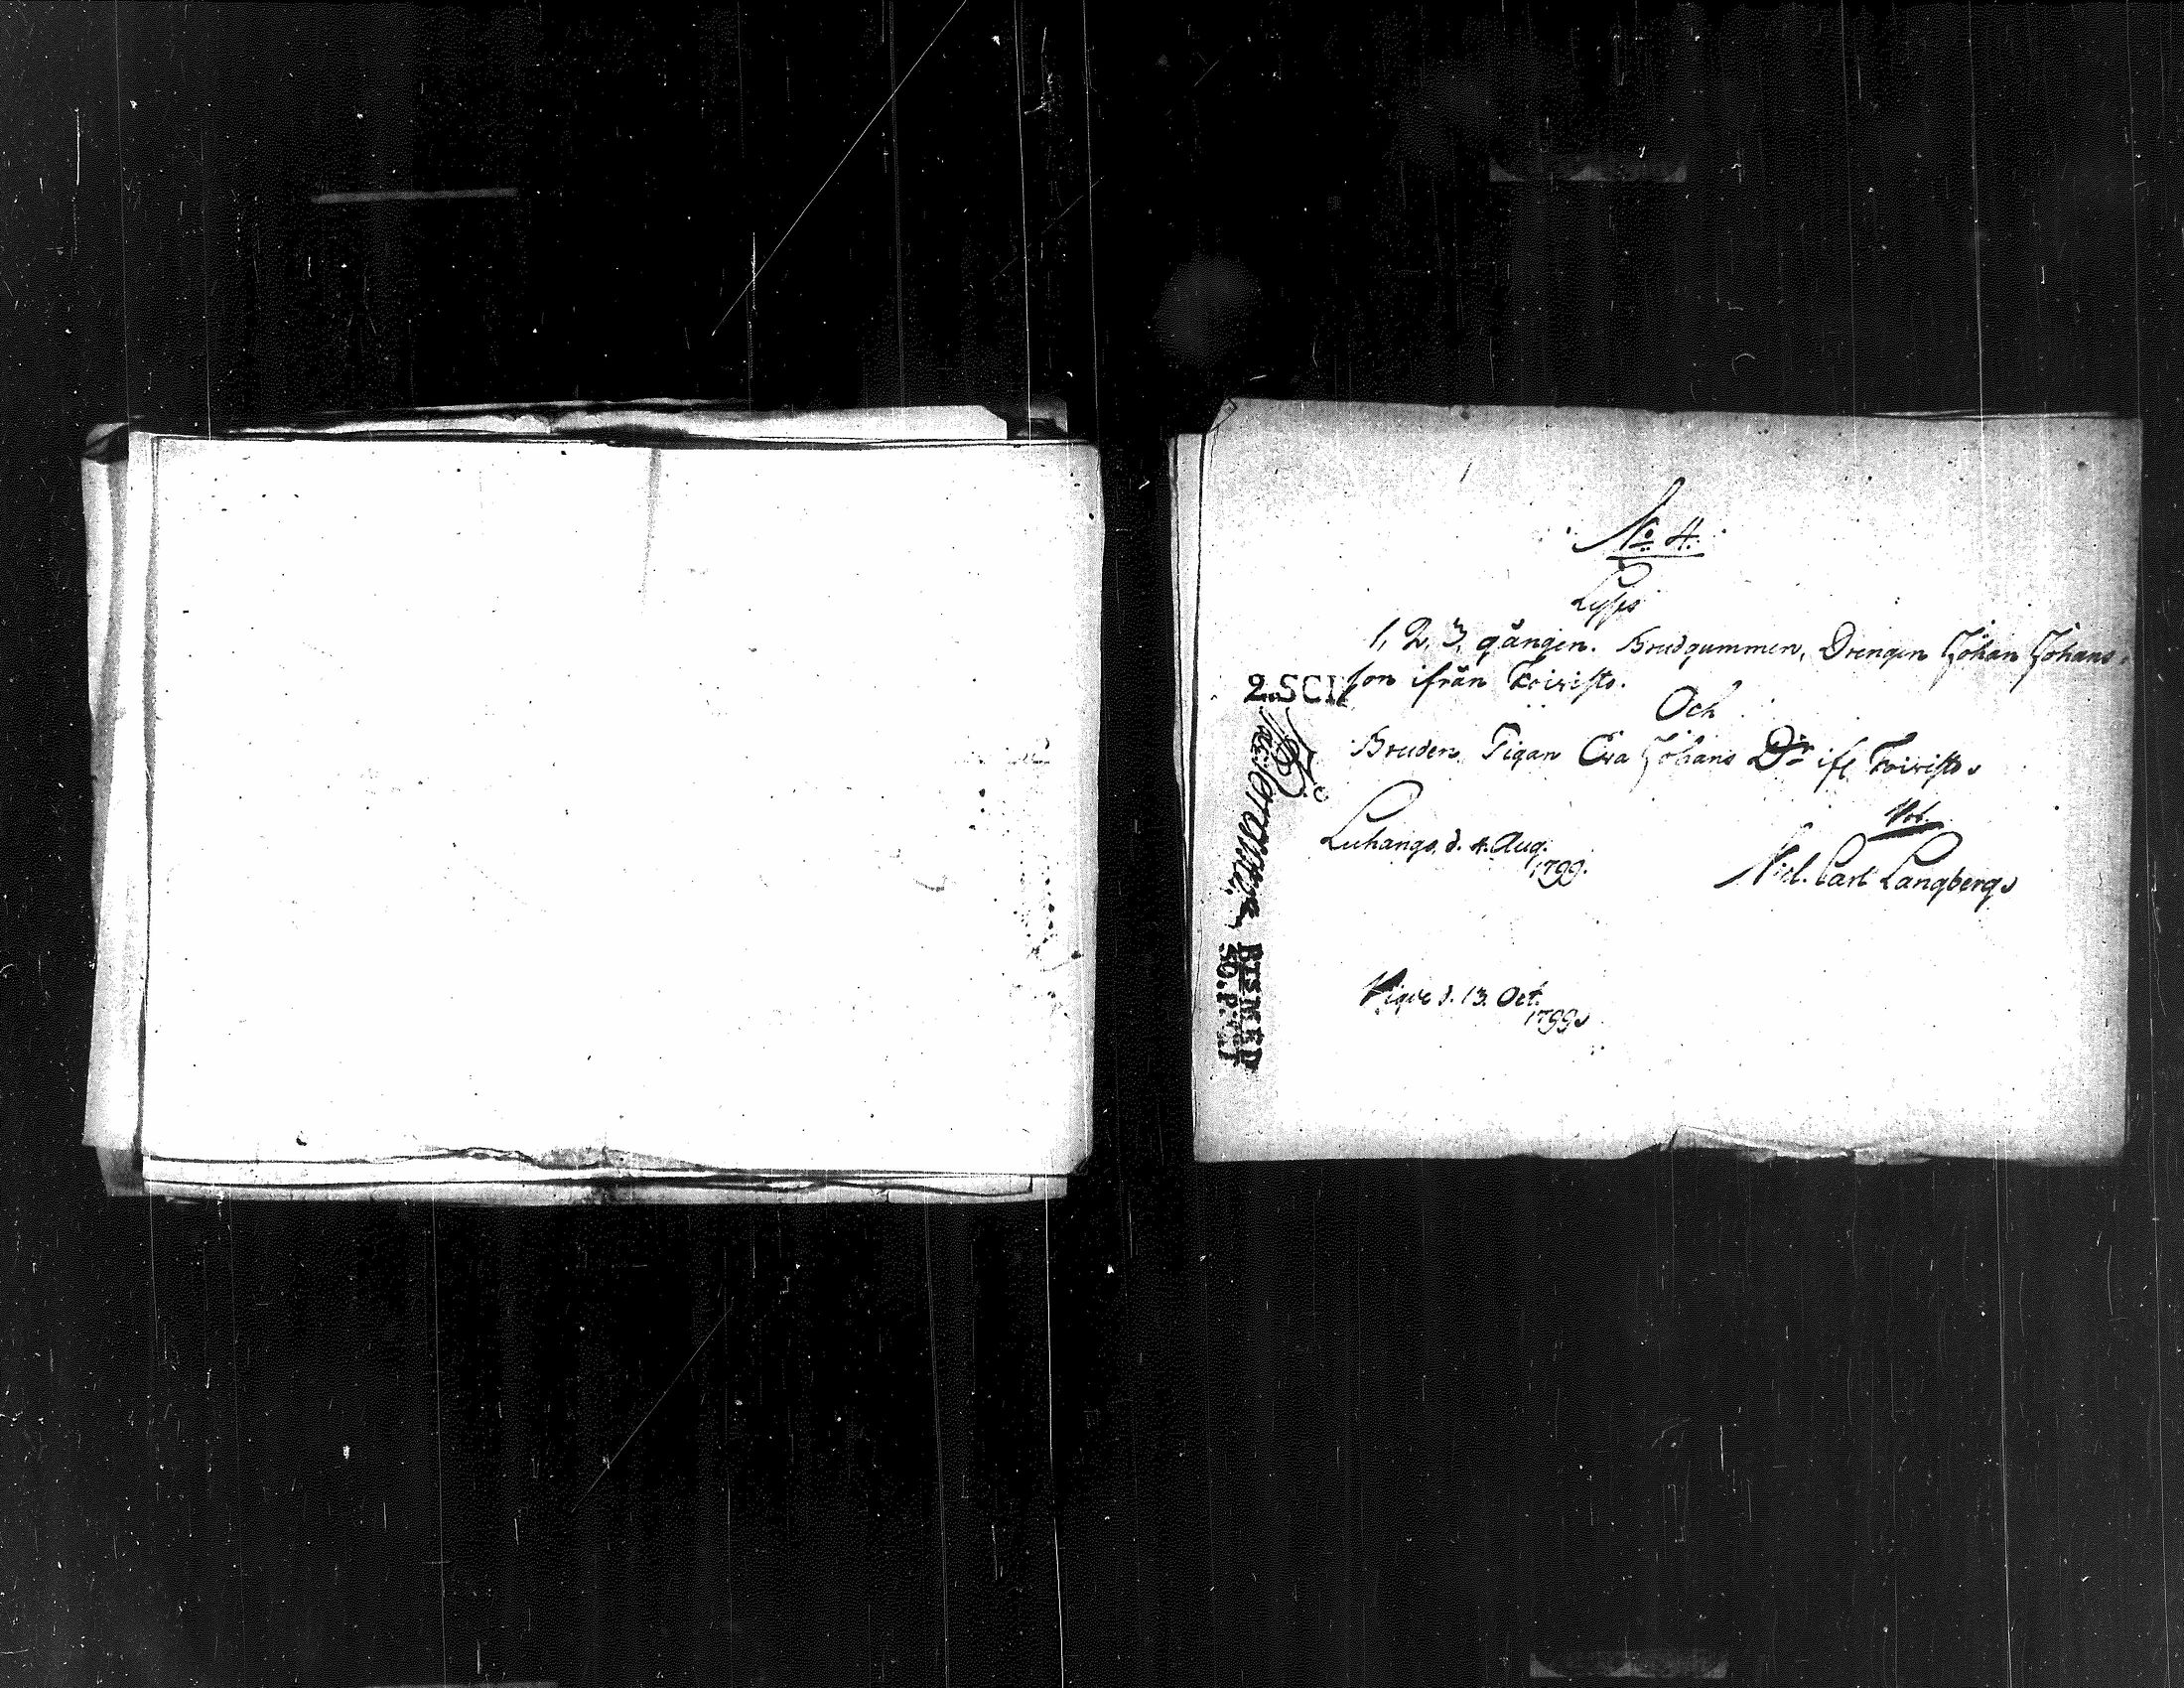 No 4.
Lyses
1, 2, 3, gången. Brudgummen, Drengen Johan Johans
son ifrån Koivisto.
Och
Bruden, Pigan Eva Johans Dr ifr Koivisto
Luhango, d. 4. Aug.
1799.
Nicl. Carl Langberg
Vigde d. 13. Oct.
1799
2 SCI